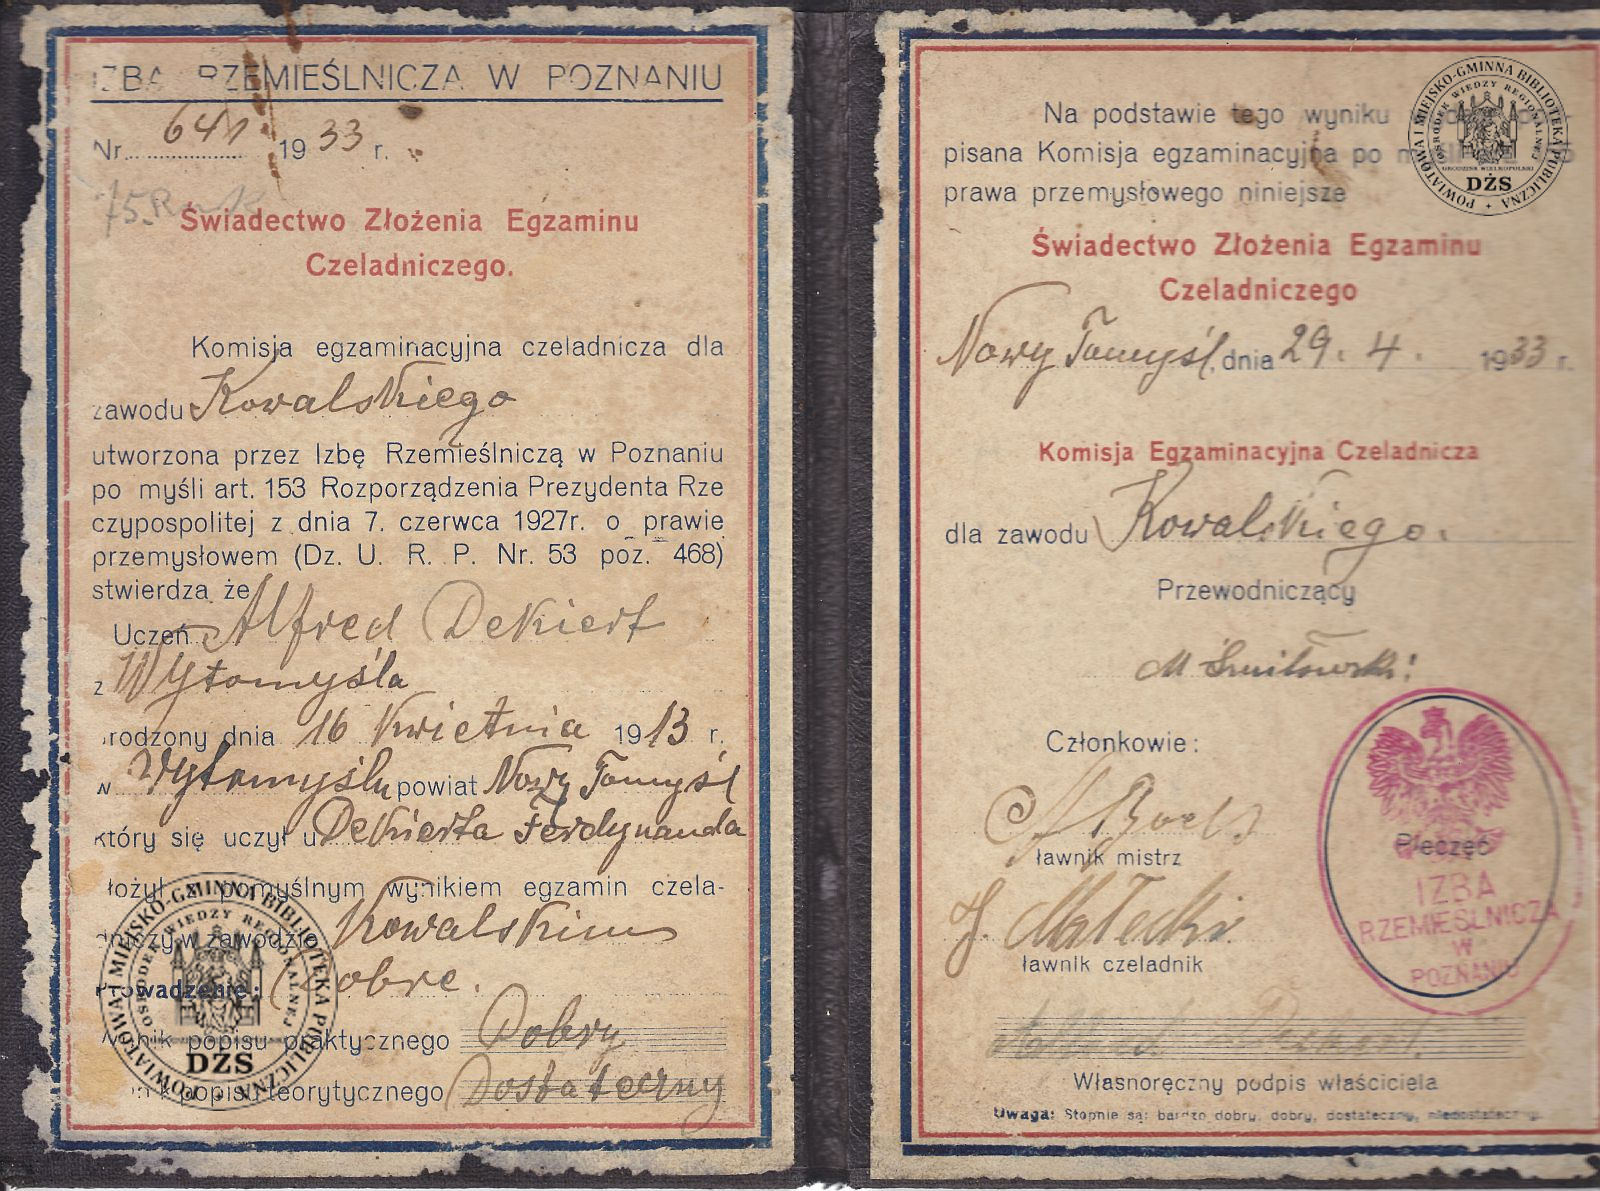 IZBA RZEMIEŚLNICZA W POZNANIU
Nr. 641 1933 r.
Świadectwo Złożenia Egzaminu
Czeladniczego.
Komisja egzaminacyjna czeladnicza dla
zawodu Kowalskiego
utworzona przez Izbę Rzemieślniczą w Poznaniu
po myśli art. 153 Rozporządzenia Prezydenta Rze
czypospolitej z dnia 7. czerwca 1927r. o prawie
przemysłowem (Dz. U. R. P. Nr. 53 poz. 468)
stwierdza że
Uczeń Alfred Dekiert
z Wytomyśla
rodzony dnia 16 Kwietnia 1913 r.
w Wytomyślu powiat Nowy Tomyśl
który się uczył u Dekierta Ferdynanda
łożył pomyślnym wynikiem egzamin czela-
dniczy w zawodzie Kowalskim
rowadzenie: Dobre.
nik popisu praktycznego Dobry
k popisu teorytycznego Dostateczny
POWIATOWA I MIEJSKO-GMINNA BIBLIOTEKA PUBLICZNA
OŚRODEK WIEDZY REGIONALNEJ
DŻS
Na podstawie tego wyniku
pisana Komisja egzaminacyjna po
prawa przemysłowego niniejsze
Świadectwo Złożenia Egzaminu
Czeladniczego
Nowy Tomyśl, dnia 29. 4. 1933 r.
Komisja Egzaminacyjna Czeladnicza
dla zawodu Kowalskiego.
Przewodniczący
Członkowie:
ławnik mistrz
J. Małecki
ławnik czeladnik
Pieczęć
IZBA
RZEMIEŚLNICZA
W
POZNANIU
Własnoręczny podpis właściciela
Uwaga: Stopnie są: bardzo dobry, dobry, dostateczny, niedostateczny.
POWIATOWA I MIEJSKO-GMINNA BIBLIOTEKA PUBLICZNA
OŚRODEK WIEDZY REGIONALNEJ
GRODZISK WIELKOPOLSKI
DŻS